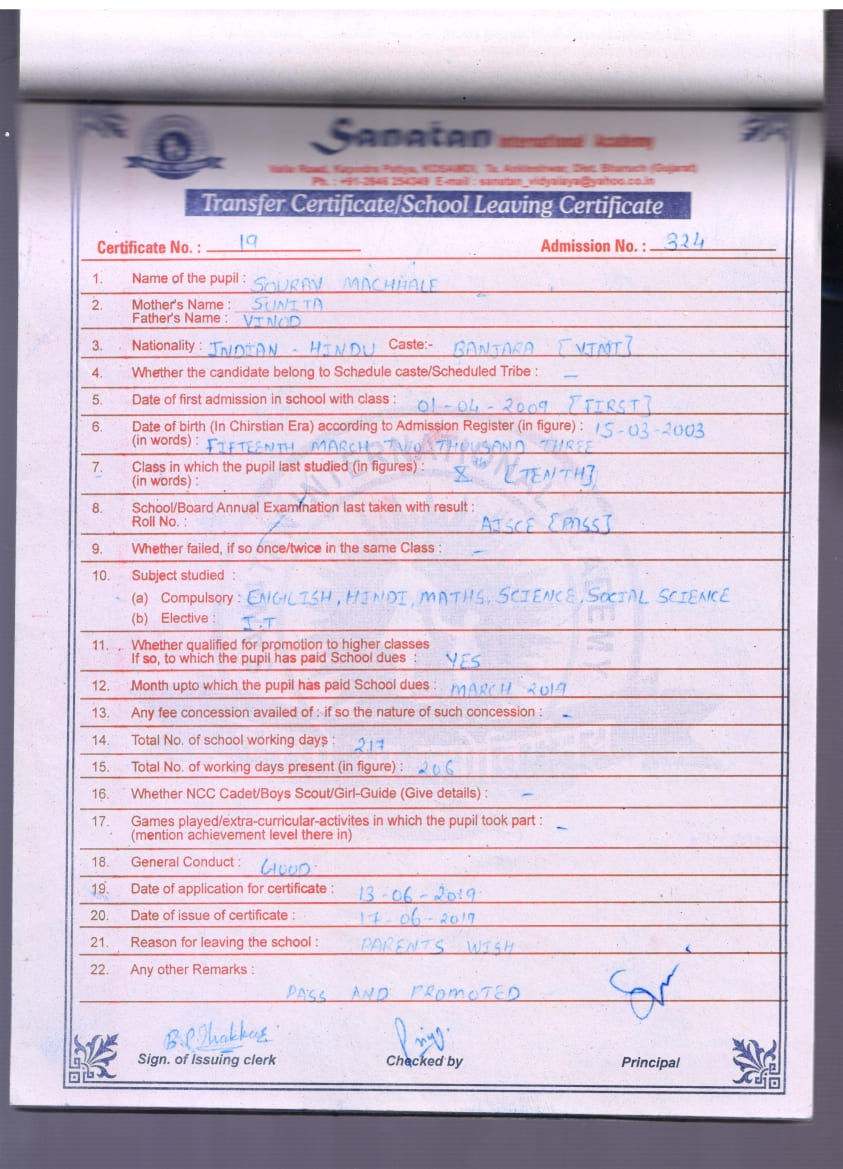 Sanatan International Academy
Valia Road, Kapodra Patiya, KOSAMDI, Ta. Ankleshwar, Dist. Bharuch (Gujarat)
Ph. : +91-2646 254349 E-mail : sanatan_vidyalaya@yahoo.co.in
Transfer Certificate/School Leaving Certificate
Certificate No. : 19 Admission No. : 324
1. Name of the pupil : SOURAV MACHHALE
2. Mother's Name : SUNITA
Father's Name : VINOD
3. Nationality : INDIAN - HINDU Caste:- BANJARA [VJNT]
4. Whether the candidate belong to Schedule caste/Scheduled Tribe : –
5. Date of first admission in school with class : 01-04-2009 [FIRST]
6. Date of birth (In Chirstian Era) according to Admission Register (in figure) : 15-03-2003
(in words) : FIFTEENTH MARCH TWO THOUSAND THREE
7. Class in which the pupil last studied (in figures) : X th [TENTH]
(in words) :
8. School/Board Annual Examination last taken with result :
Roll No. : AISCE [PASS]
9. Whether failed, if so once/twice in the same Class : –
10. Subject studied :
(a) Compulsory : ENGLISH, HINDI, MATHS, SCIENCE, SOCIAL SCIENCE
(b) Elective : I.T
11. Whether qualified for promotion to higher classes
If so, to which the pupil has paid School dues : YES
12. Month upto which the pupil has paid School dues : MARCH 2019
13. Any fee concession availed of : if so the nature of such concession : –
14. Total No. of school working days : 217
15. Total No. of working days present (in figure) : 206
16. Whether NCC Cadet/Boys Scout/Girl-Guide (Give details) : –
17. Games played/extra-curricular-activites in which the pupil took part : –
(mention achievement level there in)
18. General Conduct : GOOD
19. Date of application for certificate : 13-06-2019
20. Date of issue of certificate : 17-06-2019
21. Reason for leaving the school : PARENTS WISH
22. Any other Remarks :
PASS AND PROMOTED
B.P.Thakkar
Sign. of Issuing clerk Checked by Principal